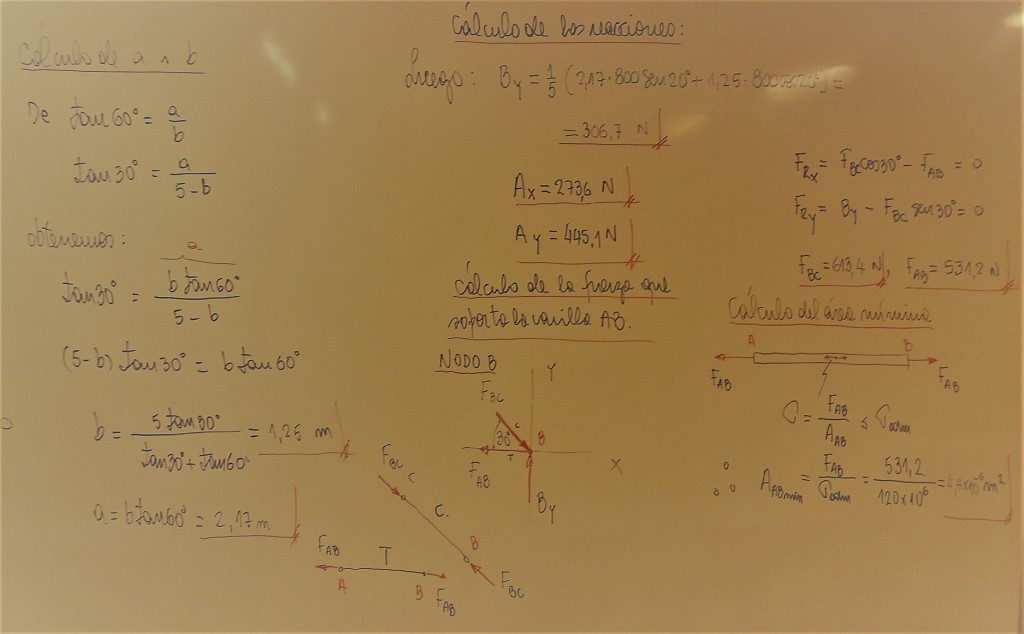 Cálculo de a ∧ b
De tan 60° = a/b
tan 30° = a/(5-b)
obtenemos:
a
tan 30° = b tan 60°/(5-b)
(5-b) tan 30° = b tan 60°
b = 5 tan 30°/(tan 30° + tan 60°) = 1,25 m
a = b tan 60° = 2,17 m
Cálculo de las reacciones:
Luego: By = 1/5 (2,17·800 sen 20° + 1,25·800 cos 20°) =
= 306,7 N
Ax = 273,6 N
Ay = 445,1 N
Cálculo de la fuerza que
soporta la varilla AB.
NODO B
Y
F_BC
c
30°
B
F_AB
T
X
By
F_BC
C
C.
B
F_BC
F_AB
T
A
B
F_AB
F_Rx = F_BC cos 30° - F_AB = 0
F_Ry = By - F_BC sen 30° = 0
F_BC = 613,4 N, F_AB = 531,2 N
Cálculo del área mínima
A
B
F_AB
F_AB
σ = F_AB/A_AB ≤ σadm
∴ A_ABmin = F_AB/σadm = 531,2/(120x10⁶) = 4,4x10⁻⁶ m²